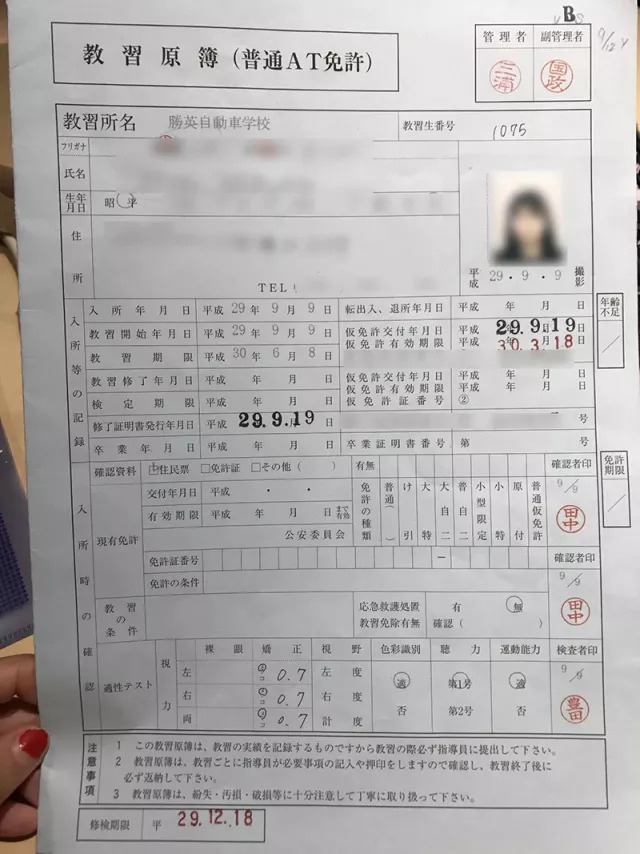 B
9/12 Y
教習原簿(普通AT免許)
管理者 副管理者
三浦 国政
教習所名 勝英自動車学校 教習生番号 1075
フリガナ
氏名
生年月日 昭 平
住所
TEL
平成 29・9・9 撮影
年齢不足
入所等の記録
入所年月日 平成 29年 9月 9日 転出入、退所年月日 平成 年 月 日
教習開始年月日 平成 29年 9月 9日 仮免許交付年月日 平成 29.9.19
教習期限 平成 30年 6月 8日 仮免許有効期限 平成 30.3.18
教習修了年月日 平成 年 月 日 仮免許交付年月日 平成 年 月 日
仮免許有効期限 平成 年 月 日
検定期限 平成 年 月 日 仮免許証番号 ②
修了証明書発行年月日 平成 29.9.19 号
卒業年月日 平成 年 月 日 卒業証明書番号 第 号
免許期限
入所時の確認
確認資料 住民票 □免許証 □その他( ) 有無 確認者印
現有免許
交付年月日 平成 ・ ・
有効期限 平成 年 月 日 まで有効
公安委員会
免許の種類 普通( ) け引 大特 大自二 普自二 小型限定 小特 原付 普通仮免許
9/9 田中
免許証番号 − 確認者印
免許の条件
9/9 田中
教習の条件 応急救護処置教習免除有無 有 無 確認( )
適性テスト 視力 裸眼 矯正 視野 色彩識別 聴力 運動能力 検査者印
左 コ 0.7 左 度 適 第1号 適 9/9
右 コ 0.7 右 度
両 コ 0.7 計 度 否 第2号 否 豊田
注意事項
1 この教習原簿は、教習の実績を記録するものですから教習の際必ず指導員に提出して下さい。
2 教習原簿は、教習ごとに指導員が必要事項の記入や押印をしますので確認し、教習終了後に
必ず返納して下さい。
3 教習原簿は、紛失・汚損・破損等に十分注意して丁寧に取り扱って下さい。
修検期限 平 29.12.18